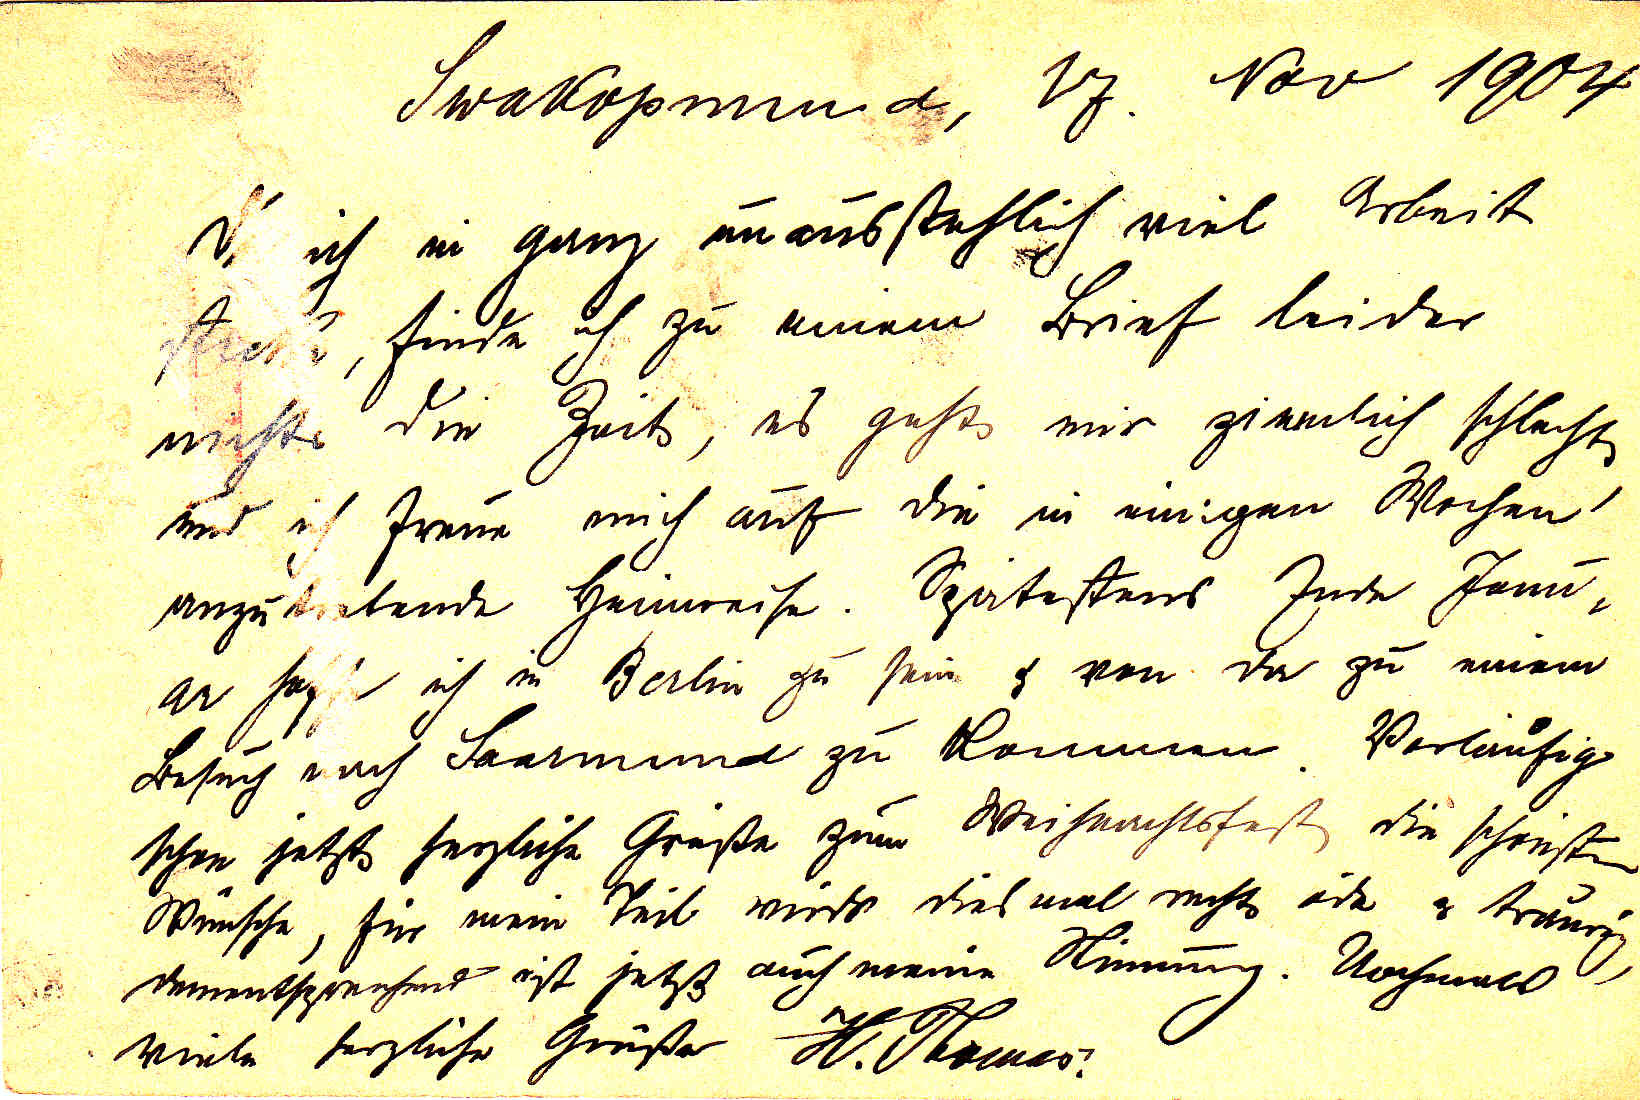 Swakopmund, 17. Nov 1904
Da ich in ganz unausstehlich viel Arbeit
stecke, finde ich zu einem Brief leider
nicht die Zeit, es geht mir ziemlich schlecht
und ich freue mich auf die in einigen Wochen
anzutretende Heimreise. Spätestens Ende Janu-
ar hoffe ich in Berlin zu sein & von da zu einem
Besuch nach Saarmund zu kommen. Vorläufig
schon jetzt herzliche Grüße zum Weihnachtsfest, die schönsten
Wünsche, für mein Teil wirds diesmal recht öde & traurig,
dementsprechend ist jetzt auch meine Stimmung. Nochmals
viele herzliche Grüße H. Thomas.